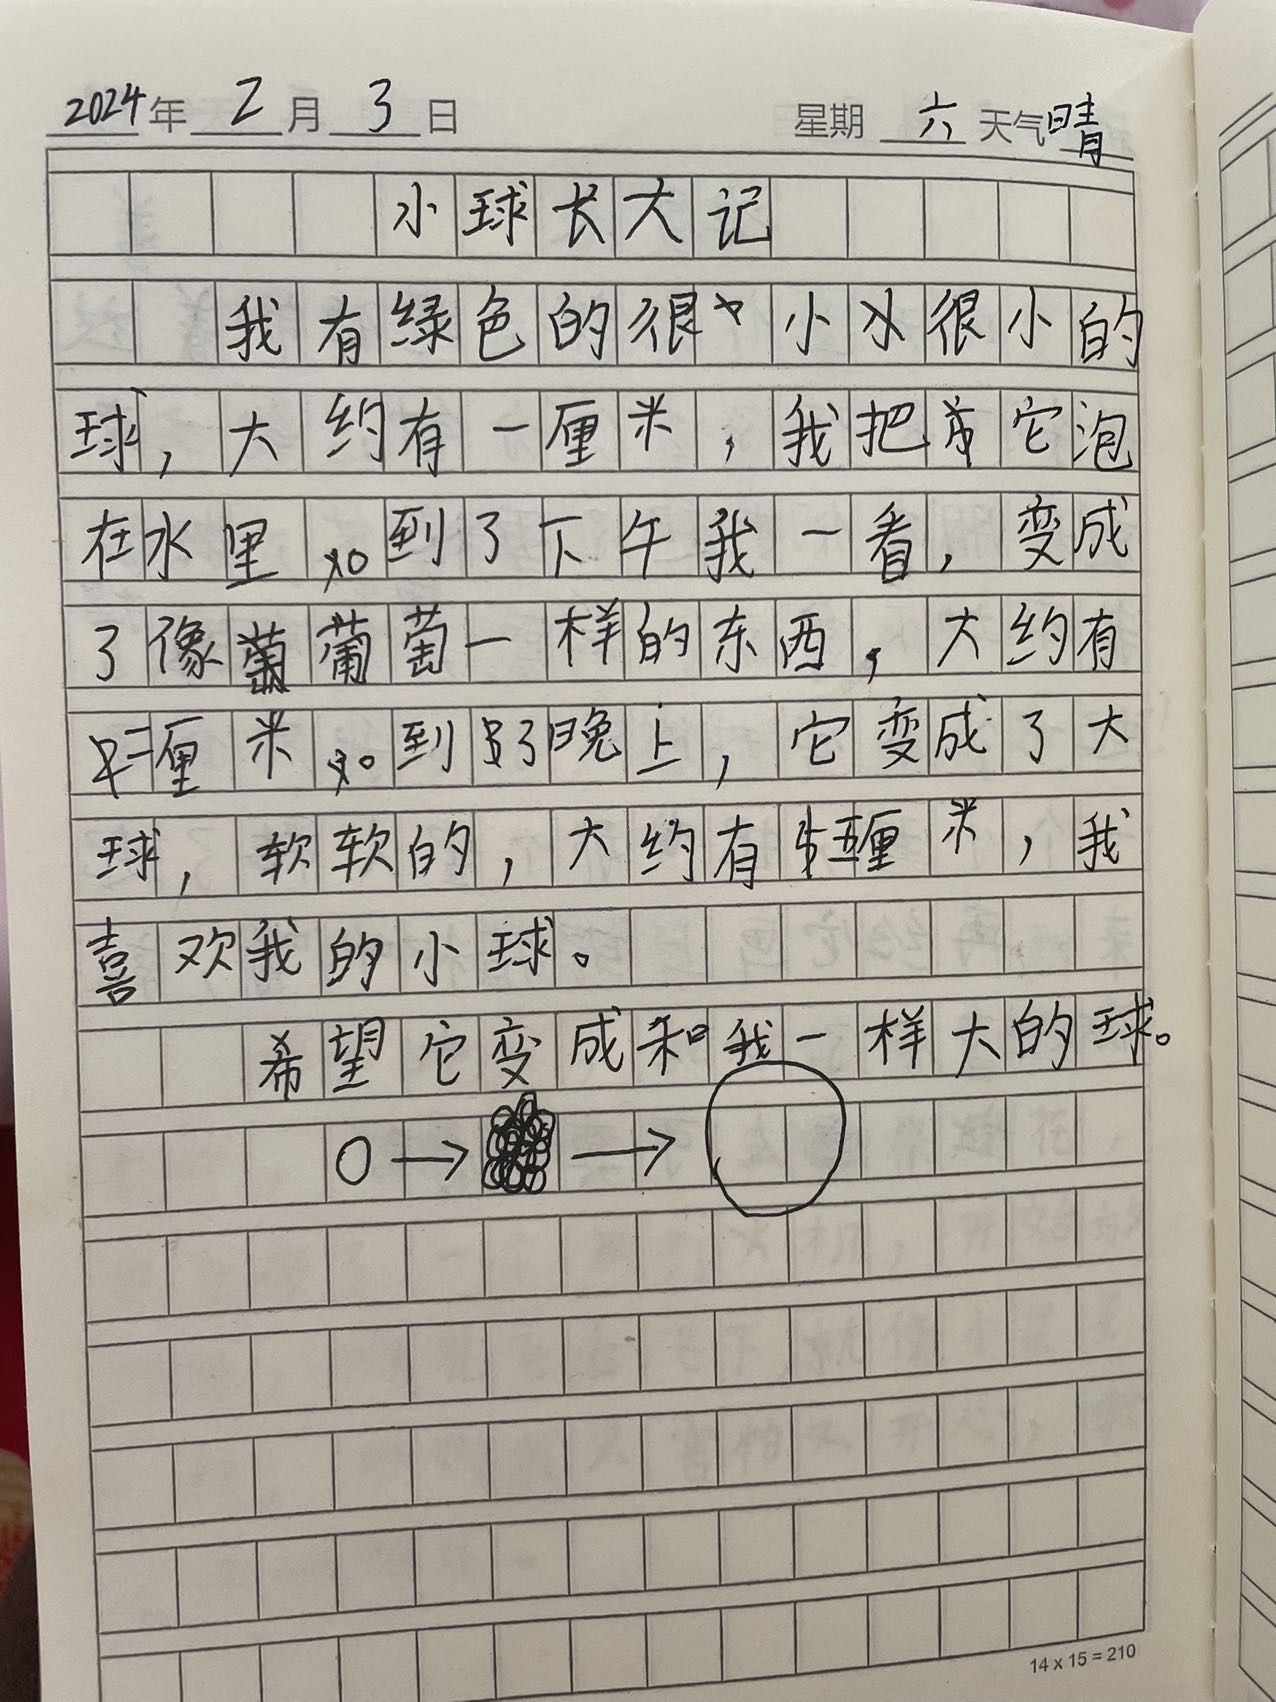 2024年 2月 3日 星期 六 天气晴
小球长大记
我有绿色的很小小水很小的
球，大约有一厘米，我把它泡
在水里。到了下午我一看，变成
了像葡萄一样的东西，大约有
二厘米。到了晚上，它变成了大
球，软软的，大约有五厘米，我
喜欢我的小球。
希望它变成和我一样大的球。
14 x 15 = 210